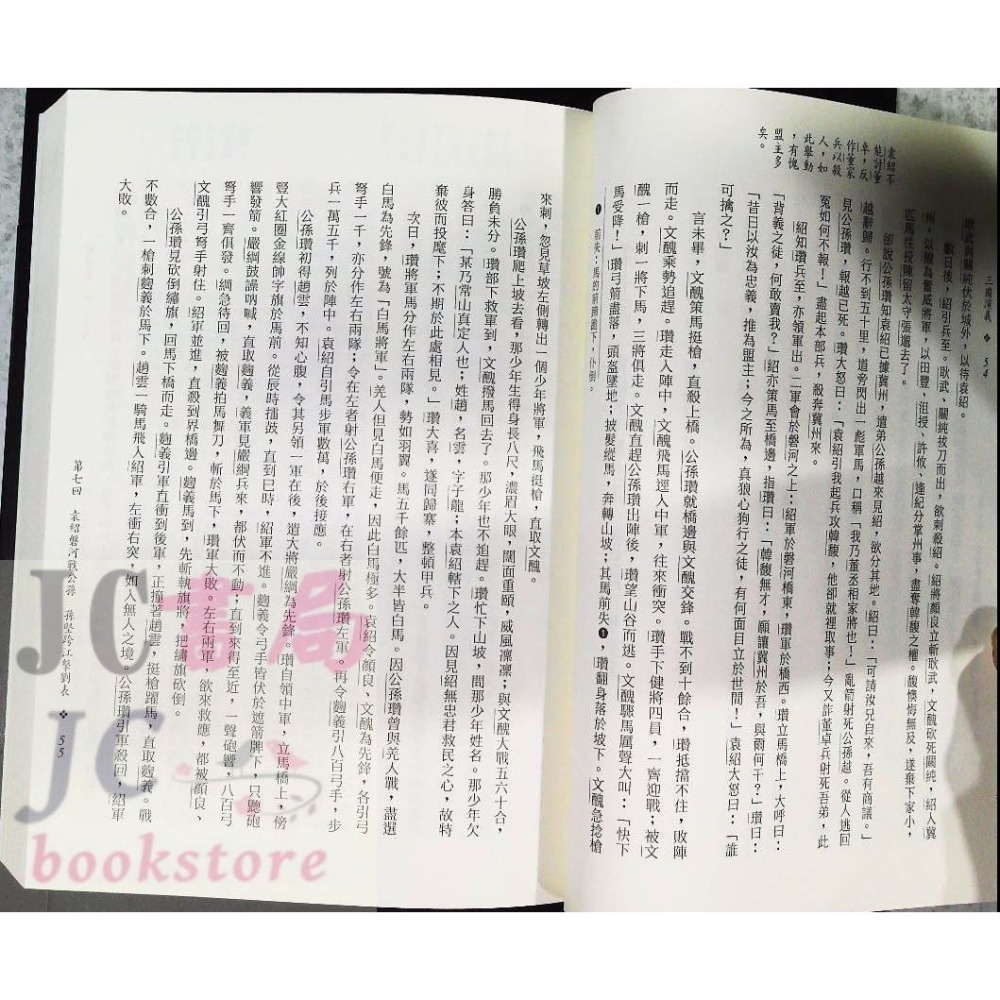 三國演義 ❖ 54
耿武與關純伏於城外，以待袁紹。
數日後，紹引兵至。耿武、關純拔刀而出，欲刺殺紹。紹將顏良立斬耿武，文醜砍死關純，紹入冀
州，以馥為奮威將軍，以田豐、沮授、許攸、逢紀分掌州事，盡奪韓馥之權。馥懊悔無及，遂棄下家小，
匹馬往投陳留太守張邈去了。
卻說公孫瓚知袁紹已據冀州，遣弟公孫越來見紹，欲分其地。紹曰：「可請汝兄自來，吾有商議。」
越辭歸。行不到五十里，道旁閃出一彪軍馬，口稱「我乃董丞相家將也！」亂箭射死公孫越。從人逃回
見公孫瓚，報越已死。瓚大怒曰：「袁紹引我起兵攻韓馥，他卻就裡取事；今又詐董卓兵射死吾弟，此
冤如何不報！」盡起本部兵，殺奔冀州來。
紹知瓚兵至，亦領軍出。二軍會於磐河之上：紹軍於磐河橋東，瓚軍於橋西。瓚立馬橋上，大呼曰：
「背義之徒，何敢賣我？」紹亦策馬至橋邊，指瓚曰：「韓馥無才，願讓冀州於吾，與爾何干？」瓚曰：
「昔日以汝為忠義，推為盟主；今之所為，真狼心狗行之徒，有何面目立於世間！」袁紹大怒曰：「誰
可擒之？」
言未畢，文醜策馬挺槍，直殺上橋。公孫瓚就橋邊與文醜交鋒。戰不到十餘合，瓚抵擋不住，敗陣
而走。文醜乘勢追趕。瓚走入陣中，文醜飛馬逕入中軍，往來衝突。瓚手下健將四員，一齊迎戰；被文
醜一槍，刺一將下馬，三將俱走。文醜直趕公孫瓚出陣後，瓚望山谷而逃。文醜驟馬厲聲大叫：「快下
馬受降！」瓚弓箭盡落，頭盔墜地；披髮縱馬，奔轉山坡；其馬前失❶，瓚翻身落於坡下。文醜急捻槍
袁紹不
能討董
卓，反
作董家
兵以殺
人，如
此舉動
，有愧
盟主多
矣。
❶ 前失：馬的前蹄跪下，仆倒。
來刺，忽見草坡左側轉出一個少年將軍，飛馬挺槍，直取文醜。
公孫瓚爬上坡去看，那少年生得身長八尺，濃眉大眼，闊面重頤，威風凜凜；與文醜大戰五六十合，
勝負未分。瓚部下救軍到，文醜撥馬回去了。那少年也不追趕。瓚忙下山坡，問那少年姓名。那少年欠
身答曰：「某乃常山真定人也；姓趙，名雲，字子龍；本袁紹轄下之人。因見紹無忠君救民之心，故特
棄彼而投麾下；不期於此處相見。」瓚大喜，遂同歸寨，整頓甲兵。
次日，瓚將軍馬分作左右兩隊，勢如羽翼。馬五千餘匹，大半皆白馬。因公孫瓚曾與羌人戰，盡選
白馬為先鋒，號為「白馬將軍」。羌人但見白馬便走，因此白馬極多。袁紹令顏良、文醜為先鋒，各引弓
弩手一千，亦分作左右兩隊；令在左者射公孫瓚右軍，在右者射公孫瓚左軍。再令麴義引八百弓手，步
兵一萬五千，列於陣中。袁紹自引馬步軍數萬，於後接應。
公孫瓚初得趙雲，不知心腹，令其另領一軍在後，遣大將嚴綱為先鋒。瓚自領中軍，立馬橋上，傍
豎大紅圈金線帥字旗於馬前。從辰時擂鼓，直到巳時，紹軍不進。麴義令弓手皆伏於遮箭牌下，只聽砲
響發箭。嚴綱鼓譟吶喊，直取麴義，義軍見嚴綱兵來，都伏而不動；直到來得至近，一聲砲響，八百弓
弩手一齊俱發。綱急待回，被麴義拍馬舞刀，斬於馬下，瓚軍大敗。左右兩軍，欲來救應，都被顏良、
文醜引弓弩手射住。紹軍並進，直殺到界橋邊。麴義馬到，先斬執旗將，把繡旗砍倒。
公孫瓚見砍倒繡旗，回馬下橋而走。麴義引軍直衝到後軍，正撞著趙雲，挺槍躍馬，直取麴義。戰
不數合，一槍刺麴義於馬下。趙雲一騎馬飛入紹軍，左衝右突，如入無人之境。公孫瓚引軍殺回，紹軍
大敗。
第七回 袁紹磐河戰公孫 孫堅跨江擊劉表 ❖ 55
JC書局
JC
bookstore